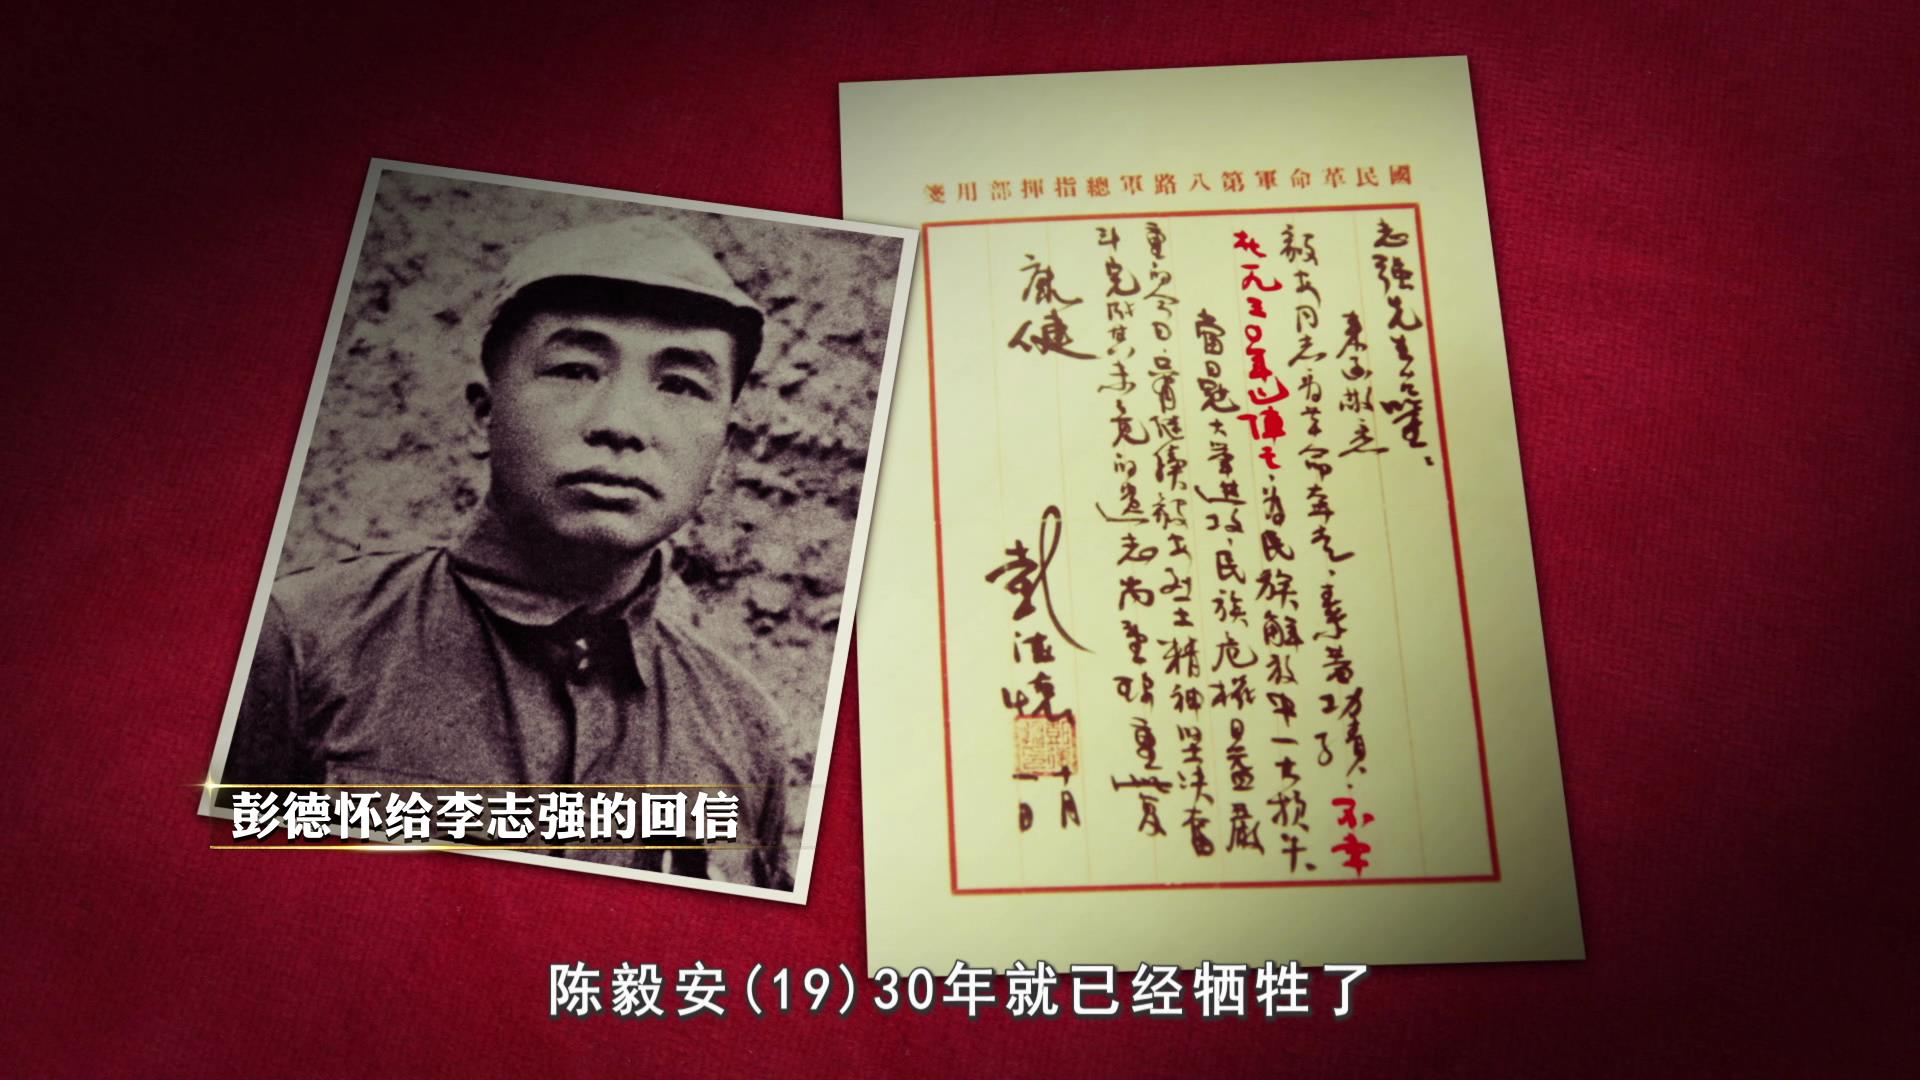 國民革命軍第八路軍總指揮部用箋
志強先生台鑒：
來函敬悉
毅安同志為革命奔走，素著功績，不幸
在一九三〇年已陣亡，為民族解放中一大損失。
當日寇大舉進攻，民族危機日益嚴
重的今日，只有繼續毅安烈士精神堅決奮
斗完成其未竟的遺志尚望珍重此复
康健
彭德懷
十月
一日
彭德怀给李志强的回信
陈毅安(19)30年就已经牺牲了